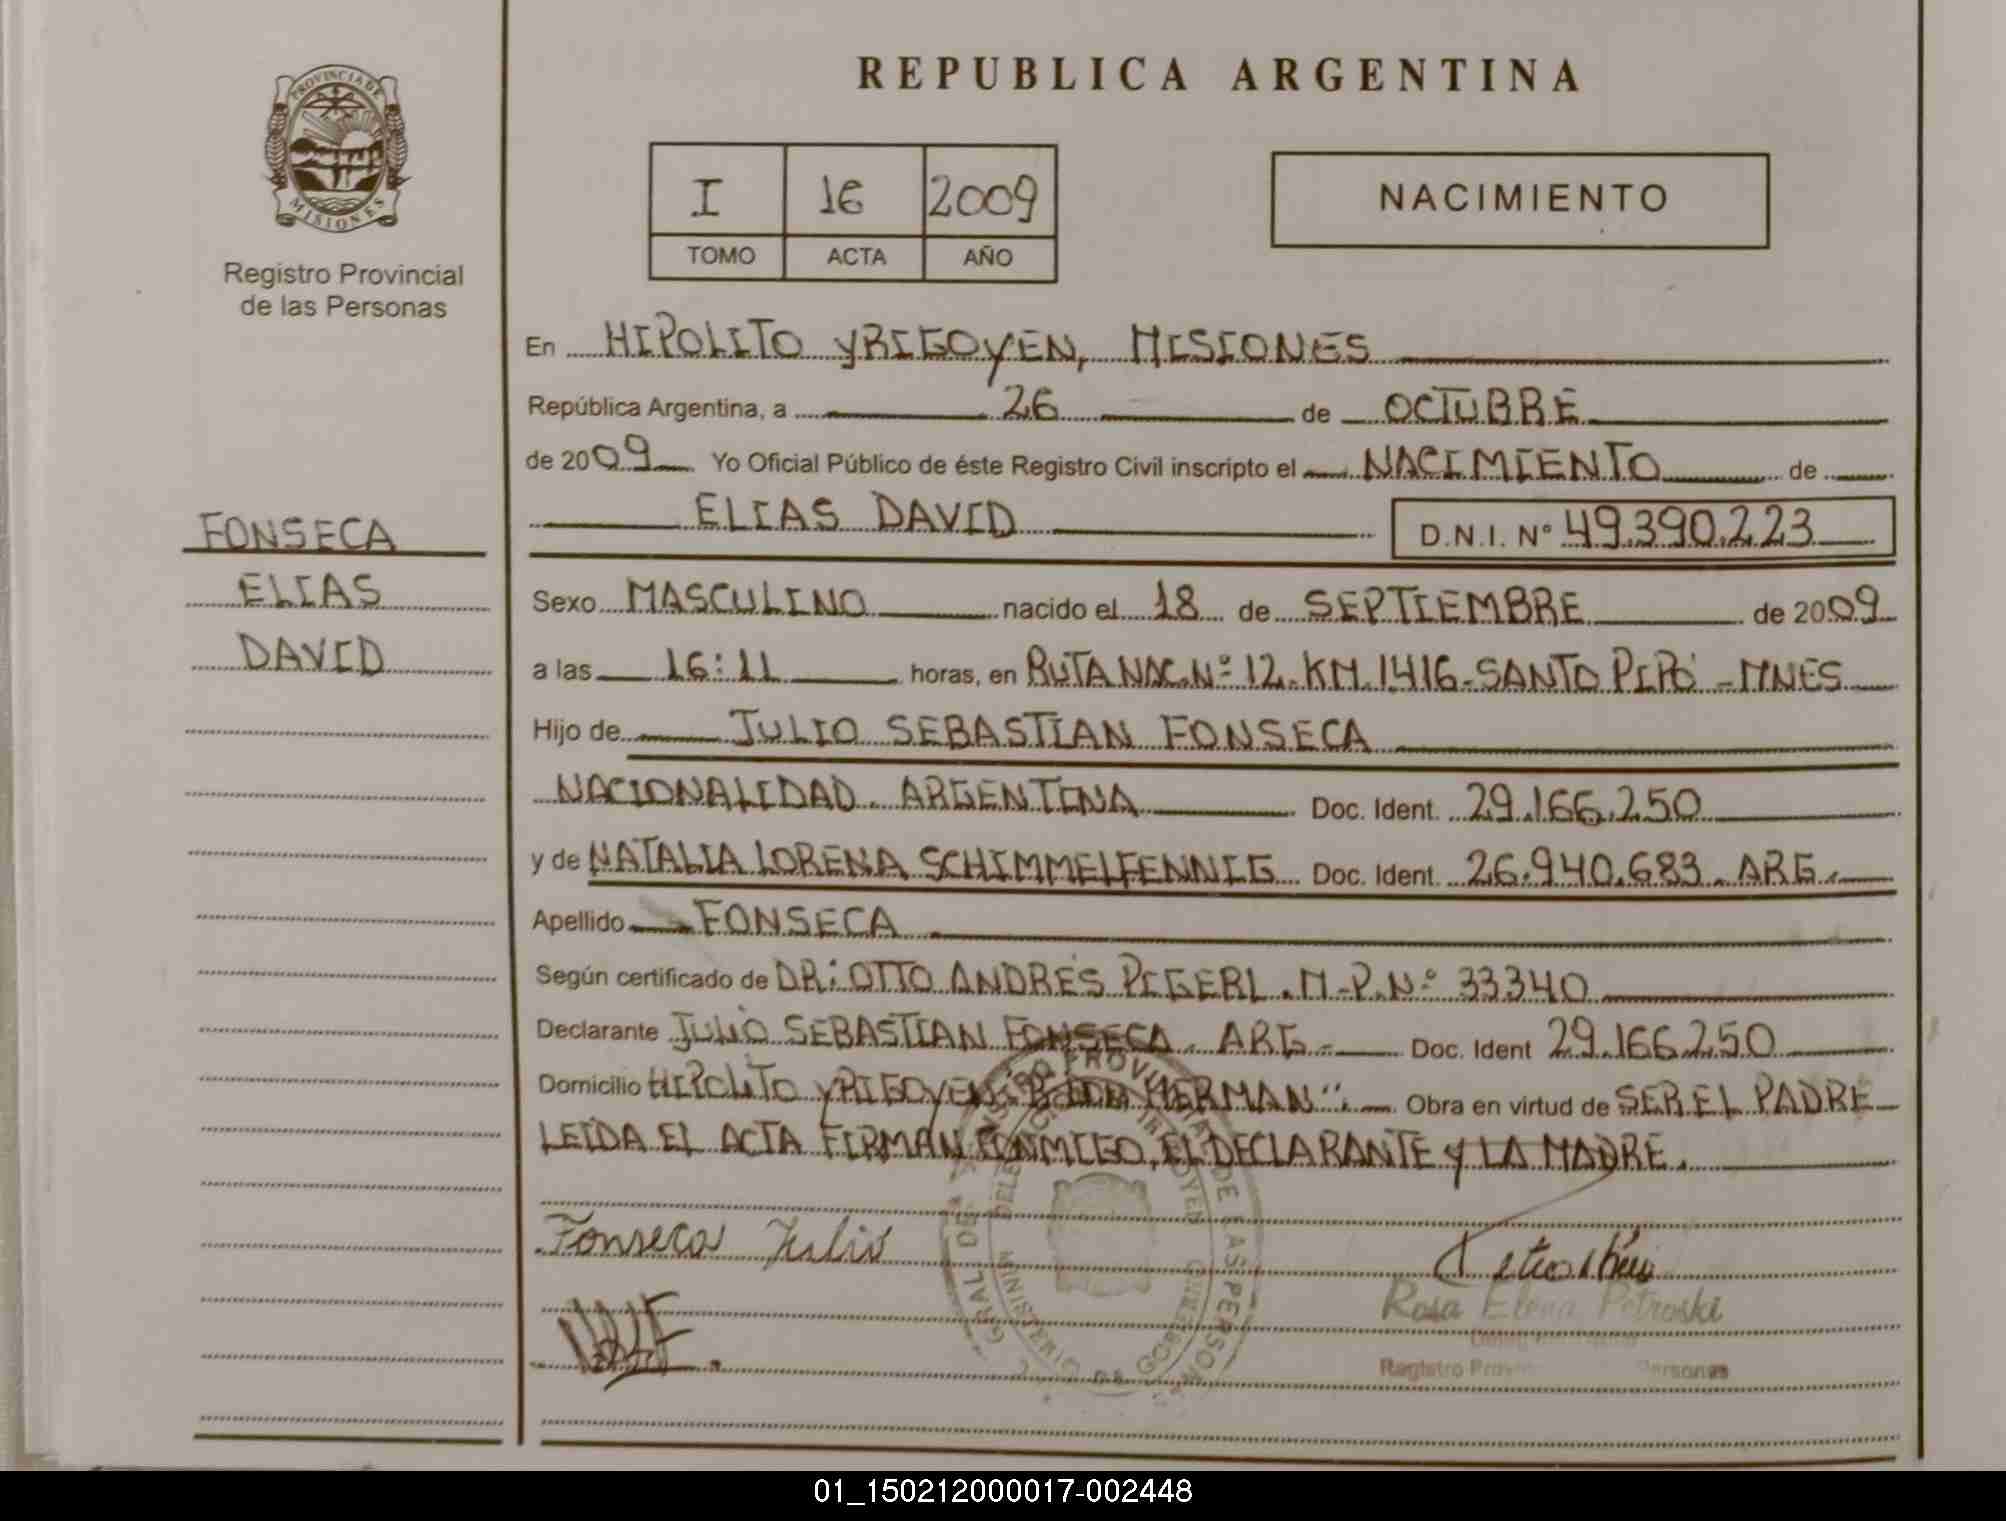 REPUBLICA ARGENTINA
PROVINCIA DE
MISIONES
Registro Provincial
de las Personas
I 16 2009
TOMO ACTA AÑO
NACIMIENTO
En HIPOLITO YRIGOYEN, MISIONES
República Argentina, a 26 de OCTUBRE
de 2009 Yo Oficial Público de éste Registro Civil inscripto el NACIMIENTO de
ELIAS DAVID D.N.I. Nº 49.390.223
FONSECA
ELIAS
DAVID
Sexo MASCULINO nacido el 18 de SEPTIEMBRE de 2009
a las 16:11 horas, en RUTA NAC. Nº 12. KM. 1416-SANTO PIPÓ - MNES
Hijo de JULIO SEBASTIAN FONSECA
NACIONALIDAD ARGENTINA Doc. Ident. 29.166.250
y de NATALIA LORENA SCHIMMELFENNIG Doc. Ident. 26.940.683. ARG.
Apellido FONSECA
Según certificado de DR: OTTO ANDRÉS PIGERL. M.P. Nº 33340
Declarante JULIO SEBASTIAN FONSECA. ARG. Doc. Ident 29.166.250
Domicilio HIPOLITO YRIGOYEN HERMAN". Obra en virtud de SER EL PADRE
LEIDA EL ACTA FIRMAN CONMIGO, EL DECLARANTE Y LA MADRE.
Fonseca Julio
Rosa Elena Petroski
Registro Personas
01_150212000017-002448